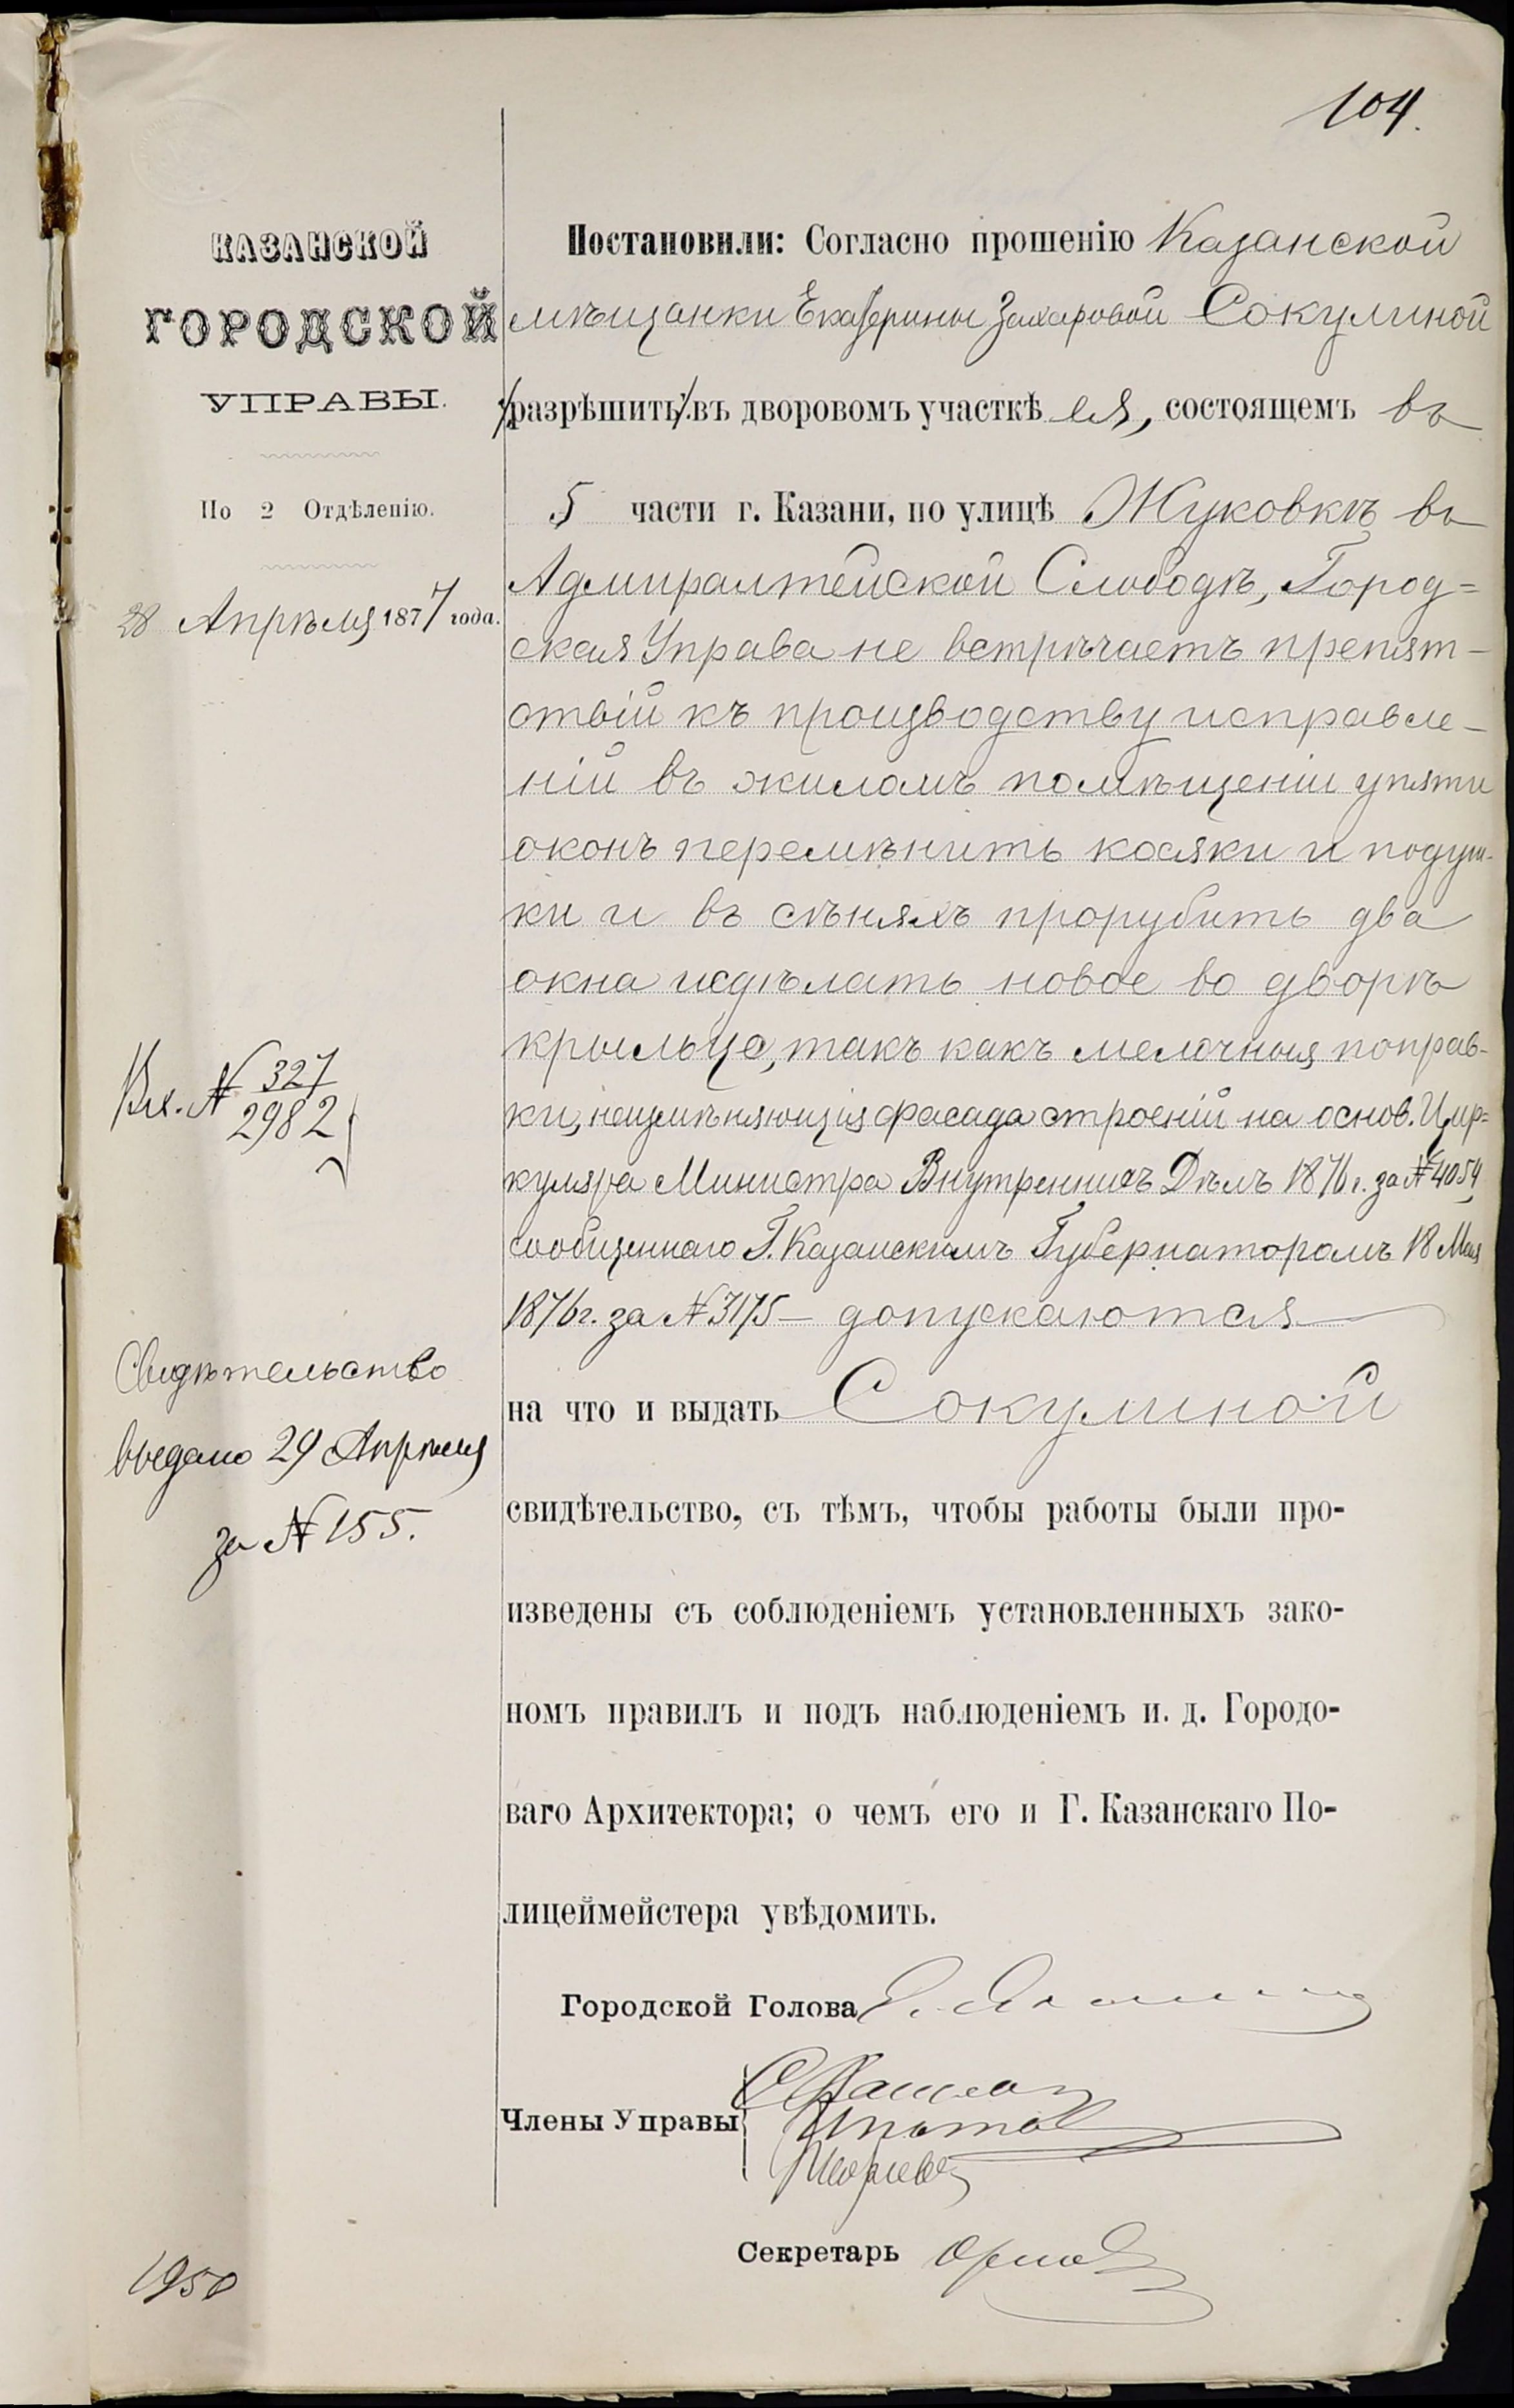 104.
КАЗАНСКОЙ
ГОРОДСКОЙ
УПРАВЫ.
По 2 Отдѣленію.
28 Апрѣля 1877 года.
Вх. № 327
2982
Свидѣтельство
выдано 29 Апрѣля
за № 155.
1950
Постановили: Согласно прошенію Казанской
мѣщанки Екатерины Захаровой Сокулиной
/разрѣшить/ въ дворовомъ участкѣ ея, состоящемъ въ
5 части г. Казани, по улицѣ Жуковкѣ въ
Адмиралтейской Слободѣ, Город=
ская Управа не встрѣчаетъ препят-
ствій къ производству исправле-
ній въ жиломъ помѣщеніи у пяти
оконъ перемѣнить косяки и подуш-
ки и въ сѣняхъ прорубить два
окна и сдѣлать новое во дворѣ
крыльцо, такъ какъ мелочныя поправ-
ки, неизмѣняющія фасада строеній на основ. Цир=
куляра Министра Внутреннихъ Дѣлъ 1876 г. за № 4054
сообщеннаго Г. Казанскимъ Губернаторомъ 18 Мая
1876 г. за № 3175 – допускаются
на что и выдать Сокулиной
свидѣтельство, съ тѣмъ, чтобы работы были про-
изведены съ соблюденіемъ установленныхъ зако-
номъ правилъ и подъ наблюденіемъ и. д. Городо-
ваго Архитектора; о чемъ его и Г. Казанскаго По-
лицеймейстера увѣдомить.
Городской Голова
Члены Управы
Секретарь